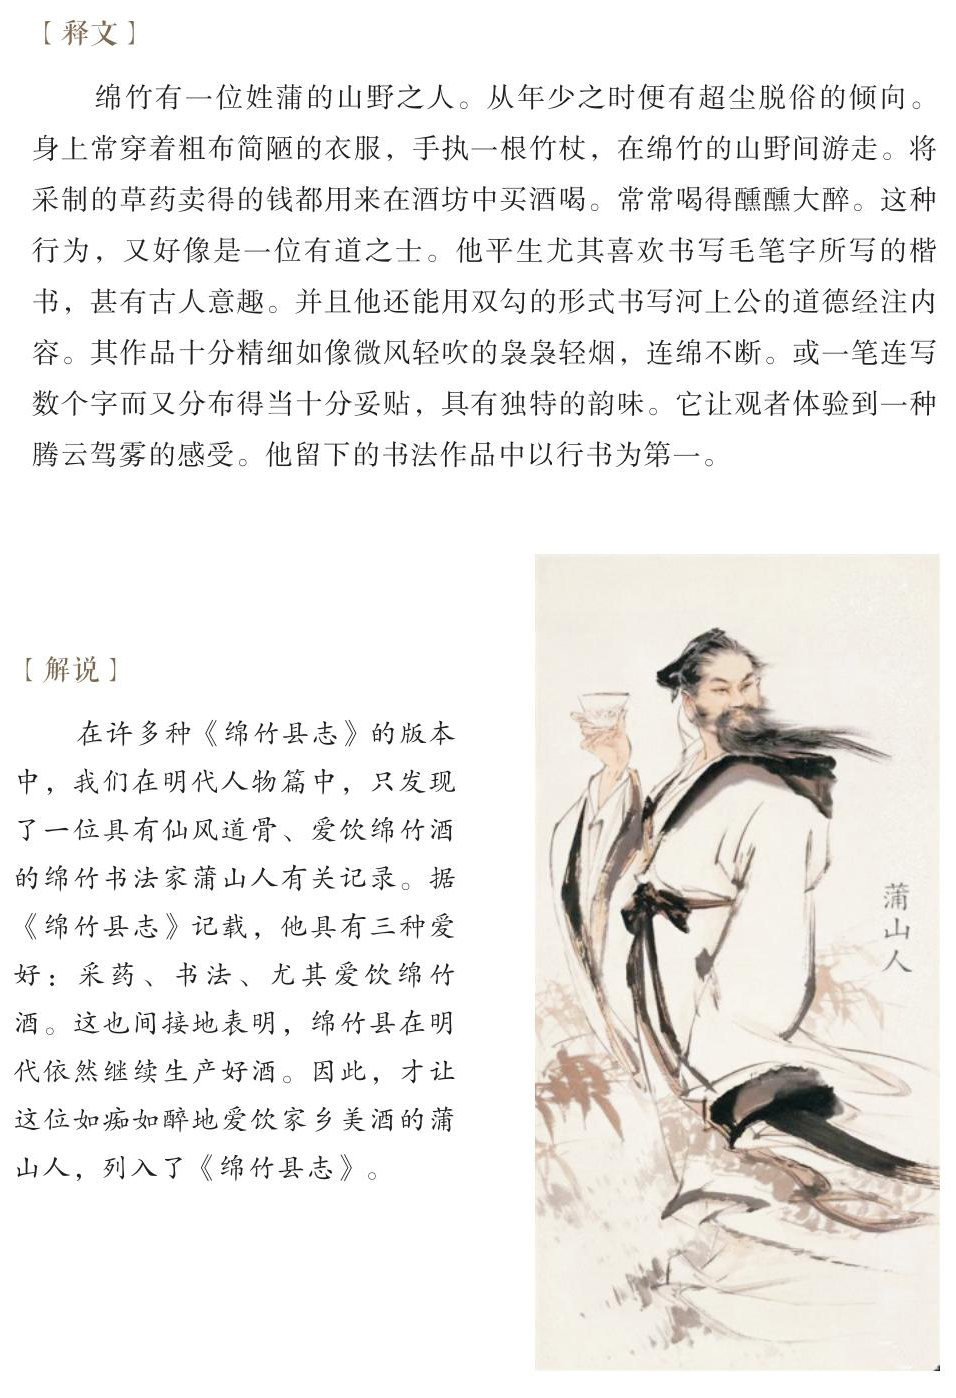 【释文】
绵竹有一位姓蒲的山野之人。从年少之时便有超尘脱俗的倾向。
身上常穿着粗布简陋的衣服，手执一根竹杖，在绵竹的山野间游走。将
采制的草药卖得的钱都用来在酒坊中买酒喝。常常喝得醺醺大醉。这种
行为，又好像是一位有道之士。他平生尤其喜欢书写毛笔字所写的楷
书，甚有古人意趣。并且他还能用双勾的形式书写河上公的道德经注内
容。其作品十分精细如像微风轻吹的袅袅轻烟，连绵不断。或一笔连写
数个字而又分布得当十分妥贴，具有独特的韵味。它让观者体验到一种
腾云驾雾的感受。他留下的书法作品中以行书为第一。
【解说】
在许多种《绵竹县志》的版本
中，我们在明代人物篇中，只发现
了一位具有仙风道骨、爱饮绵竹酒
的绵竹书法家蒲山人有关记录。据
《绵竹县志》记载，他具有三种爱
好：采药、书法、尤其爱饮绵竹
酒。这也间接地表明，绵竹县在明
代依然继续生产好酒。因此，才让
这位如痴如醉地爱饮家乡美酒的蒲
山人，列入了《绵竹县志》。
蒲山人